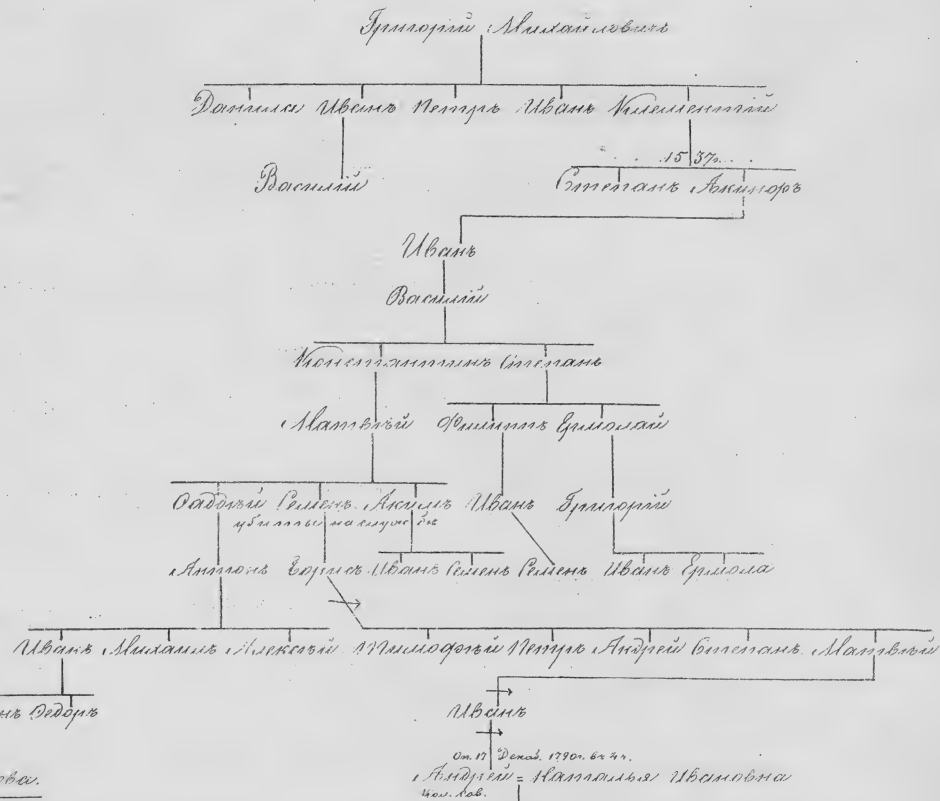 Григорій Михайловичъ
Данила Иванъ Петръ Иванъ Климентій
1537г.
Василій Степанъ
Иванъ
Василій
Константинъ Степанъ
Матвѣй Филиппъ Ермолай
Фаддѣй Семенъ Акимъ Иванъ Григорій
убиты на службѣ
Антонъ Борисъ Иванъ Семенъ Семенъ Иванъ Ермола
Иванъ Михаилъ Алексѣй Тимофѣй Петръ Андрей Степанъ Матвѣй
нъ Ѳедоръ Иванъ
17 Декаб. 1790г.
ова. Андрей = Наталья Ивановна
Кол. сов.